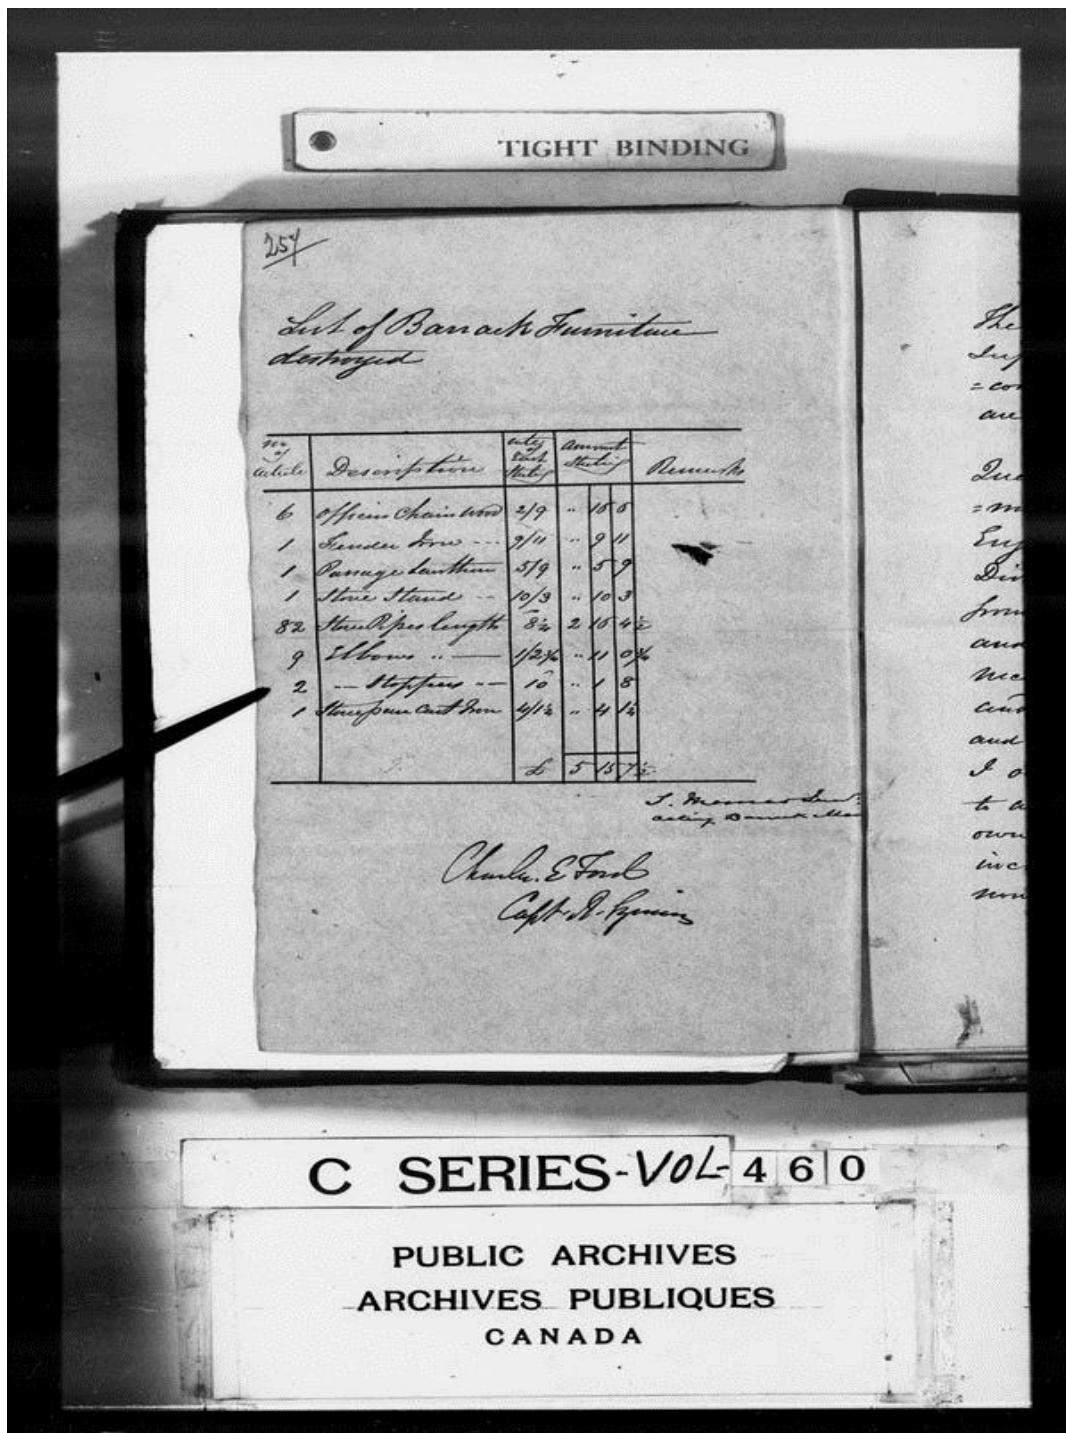 TIGHT BINDING
257
List of Barrack Furniture
destroyed
No of Article Description rate each Sterling Amount Sterling Remarks
6 Officers Chairs Wood 2/9 " 16 6
1 Fender Iron --- 9/11 " 9 11
1 Passage Lanthern 5/9 " 5 9
1 Stove Stand -- 10/3 " 10 3
82 Stove Pipes length 8¼ 2 16 4½
9 Elbows " — 1/2¾ " 11 0¾
2 -- Stoppers -- 10 " 1 8
1 Stove pan Cast Iron 4/1½ " 4 1½
£ 5 15 7½
acting Barrack
Charles. E Ford
Capt. R. Engineers
The
=con
are
Que
=m
Eng
Div
from
and
nec
and
and
I o
to a
own
inc
non
C SERIES-VOL-460
PUBLIC ARCHIVES
ARCHIVES PUBLIQUES
CANADA